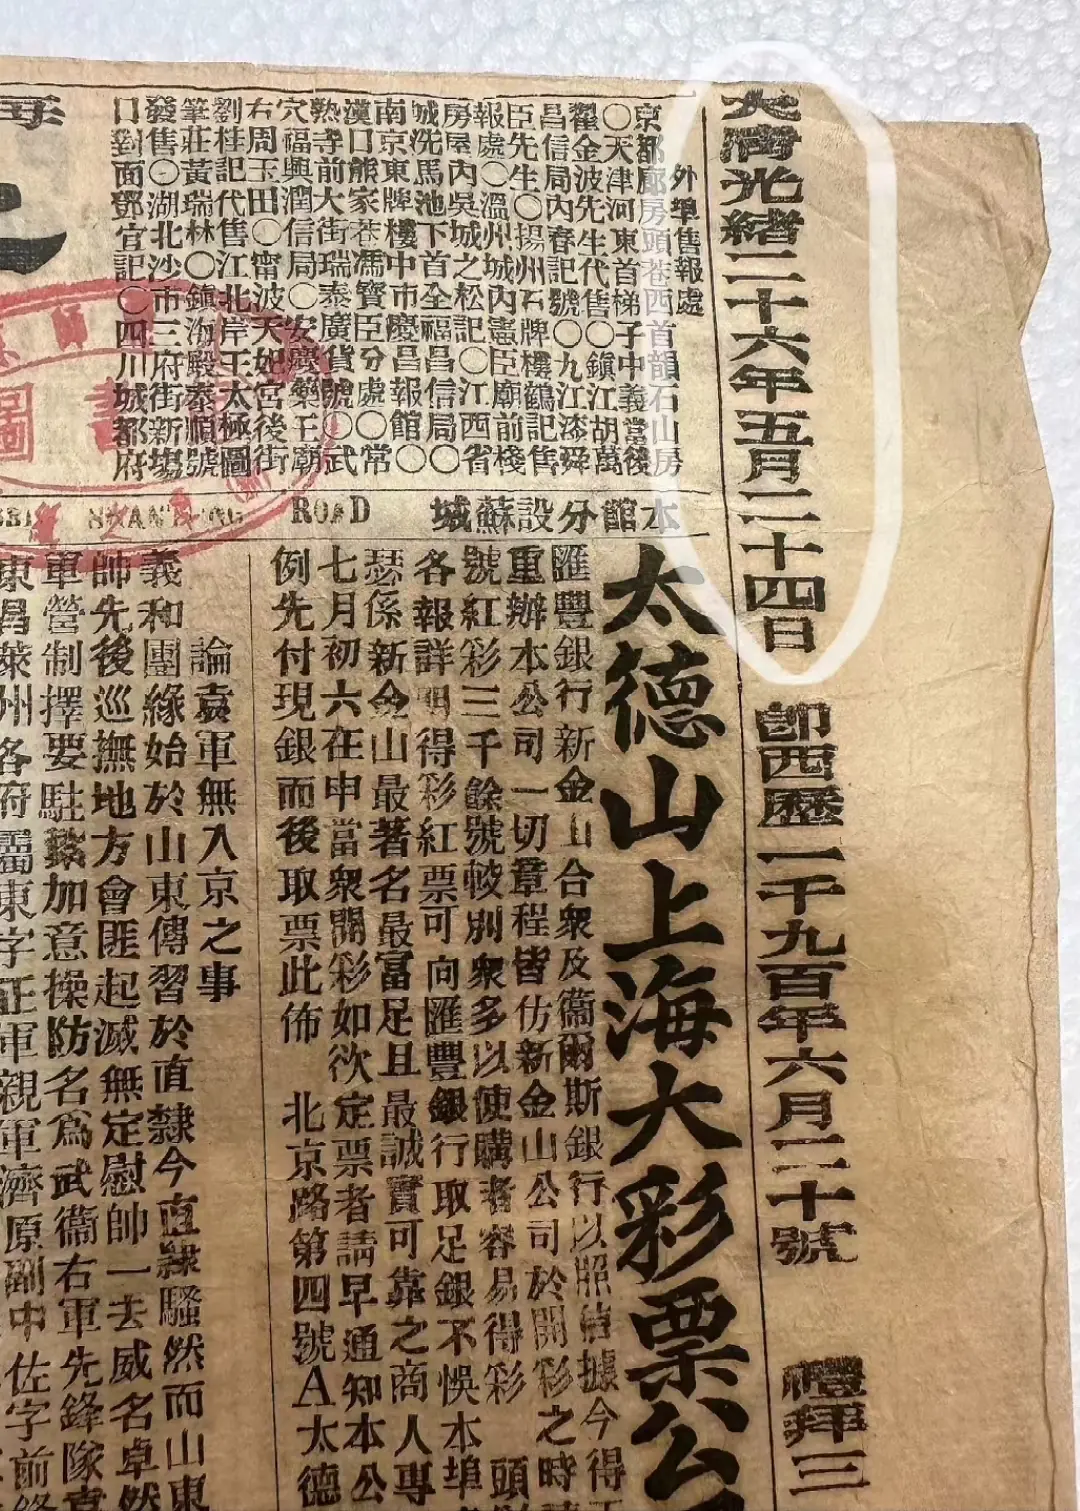 大清光緒二十六年五月二十四日 即西歷一千九百年六月二十號 禮拜三
外埠售報處
京都廊房頭巷西首韻石山房
〇天津河東首梯子中義當後
翟金波先生代售〇鎮江胡萬
昌信局內春記號〇九江漆舜
臣先生〇揚州石牌樓鶴記售
報處〇溫州城內憲臣廟前棧
房屋內吳城之松記〇江西省
城洗馬池下首全福昌信局〇
南京東牌樓中市慶昌報館〇
漢口熊家巷馮寶臣分處〇常
熟寺前大街瑞泰廣貨號〇武
穴福興潤信局〇安慶藥王廟
右周玉田〇甯波天妃宮後街
劉桂記代售江北岸王太極圖
筆莊黃瑞林〇鎮海殿泰順號
發售〇湖北沙市三府街新場
口對面鄧宜記〇四川城都府
本館分設蘇城
ROAD
太德山上海大彩票公
匯豐銀行新金山合衆及衞爾斯銀行以照信據今得
重辦本公司一切章程皆仿新金山公司於開彩之時
號紅彩三千餘號較別衆多以便購者容易得彩 頭
各報詳明得彩紅票可向匯豐銀行取足銀不悞本埠
瑟係新金山最著名最富足且最誠實可靠之商人專
七月初六在申當衆開彩如欲定票者請早通知本公
例先付現銀而後取票此佈 北京路第四號A太德
論袁軍無入京之事
義和團緣始於山東傳習於直隸今直隸騷然而山東
帥先後巡撫地方會匪起滅無定慰帥一去威名卓然
軍營制擇要駐紮加意操防名爲武衞右軍先鋒隊
東昌萊州各府屬東字正軍親軍濟原副中佐字前